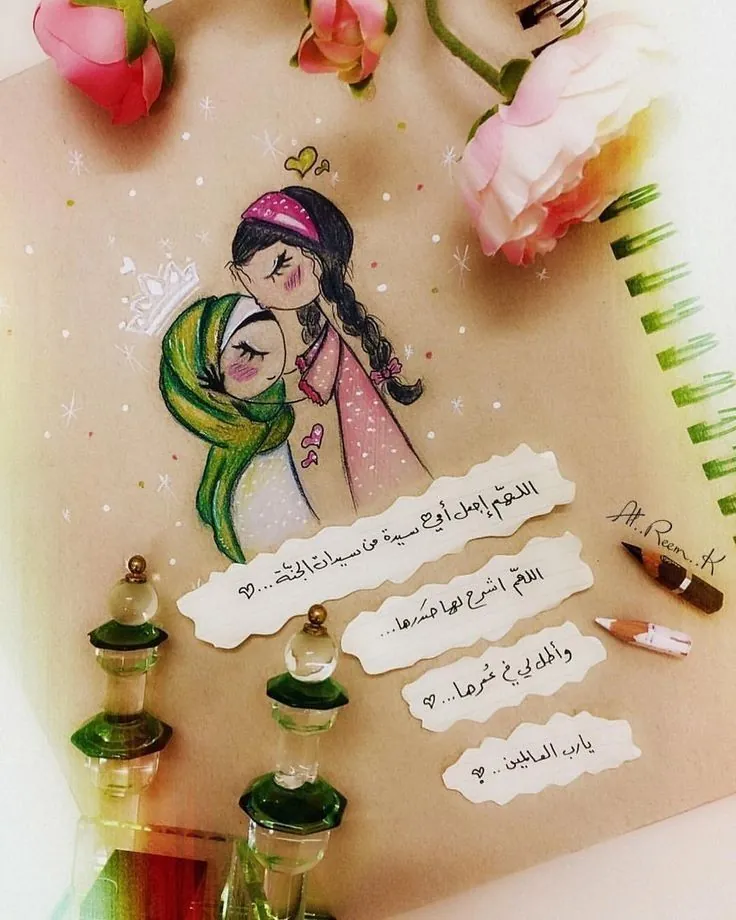 اللهمّ إجعل أمي سيدة من سيدات الجنّة...♡
اللهمّ اشرح لها صَدرها...
وأطل لي في عُمرها...♡
يارب العالمين..♡
At..Reem..K